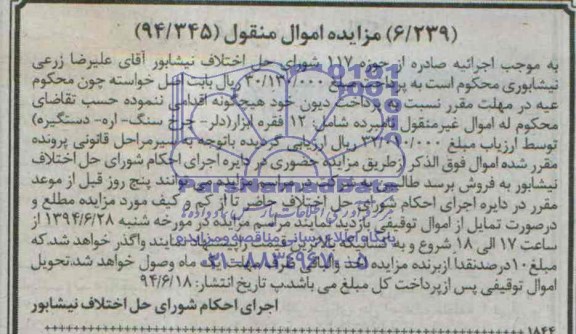 (۶/۲۳۹) مزایده اموال منقول (۹۴/۳۴۵)
به موجب اجرائیه صادره از حوزه ۱۱۷ شورای حل اختلاف نیشابور آقای علیرضا زرعی
نیشابوری محکوم است به پرداخت مبلغ ریال بابت اصل خواسته چون محکوم
علیه در مهلت مقرر نسبت به پرداخت دیون خود هیچگونه اقدامی ننموده حسب تقاضای
محکوم له اموال غیرمنقول نامبرده شامل: ۱۲ فقره ابزار(دلر- چرخ سنگ- اره- دستگیره)
توسط ارزیاب مبلغ ریال ارزیابی گردیده باتوجه به سیرمراحل قانونی پرونده
مقرر شده اموال فوق الذکر ازطریق مزایده حضوری در دایره اجرای احکام شورای حل اختلاف
نیشابور به فروش برسد در مراسم مزایده می توانند پنج روز قبل از موعد
مقرر در دایره اجرای احکام شورای حل اختلاف حاضر تا از کم و کیف مورد مزایده مطلع و
درصورت تمایل از اموال توقیفی بازدید نمایند مراسم مزایده در مورخه شنبه ۱۳۹۴/۶/۲۸ از
ساعت ۱۷ الی ۱۸ شروع و به واگذار خواهد شد.که
مبلغ ۱۰درصدنقدا ازبرنده مزایده اخذ ماه وصول خواهد شد.تحویل
اموال توقیفی پس ازپرداخت کل مبلغ می باشد.پ تاریخ انتشار: ۹۴/۶/۱۸
اجرای احکام شورای حل اختلاف نیشابور
۱۸۴۴
ParsNamadData
پایگاه اطلاع رسانی مناقصه و مزایده
۰۲۱-۸۸۳۴۹۶۷۰-۵